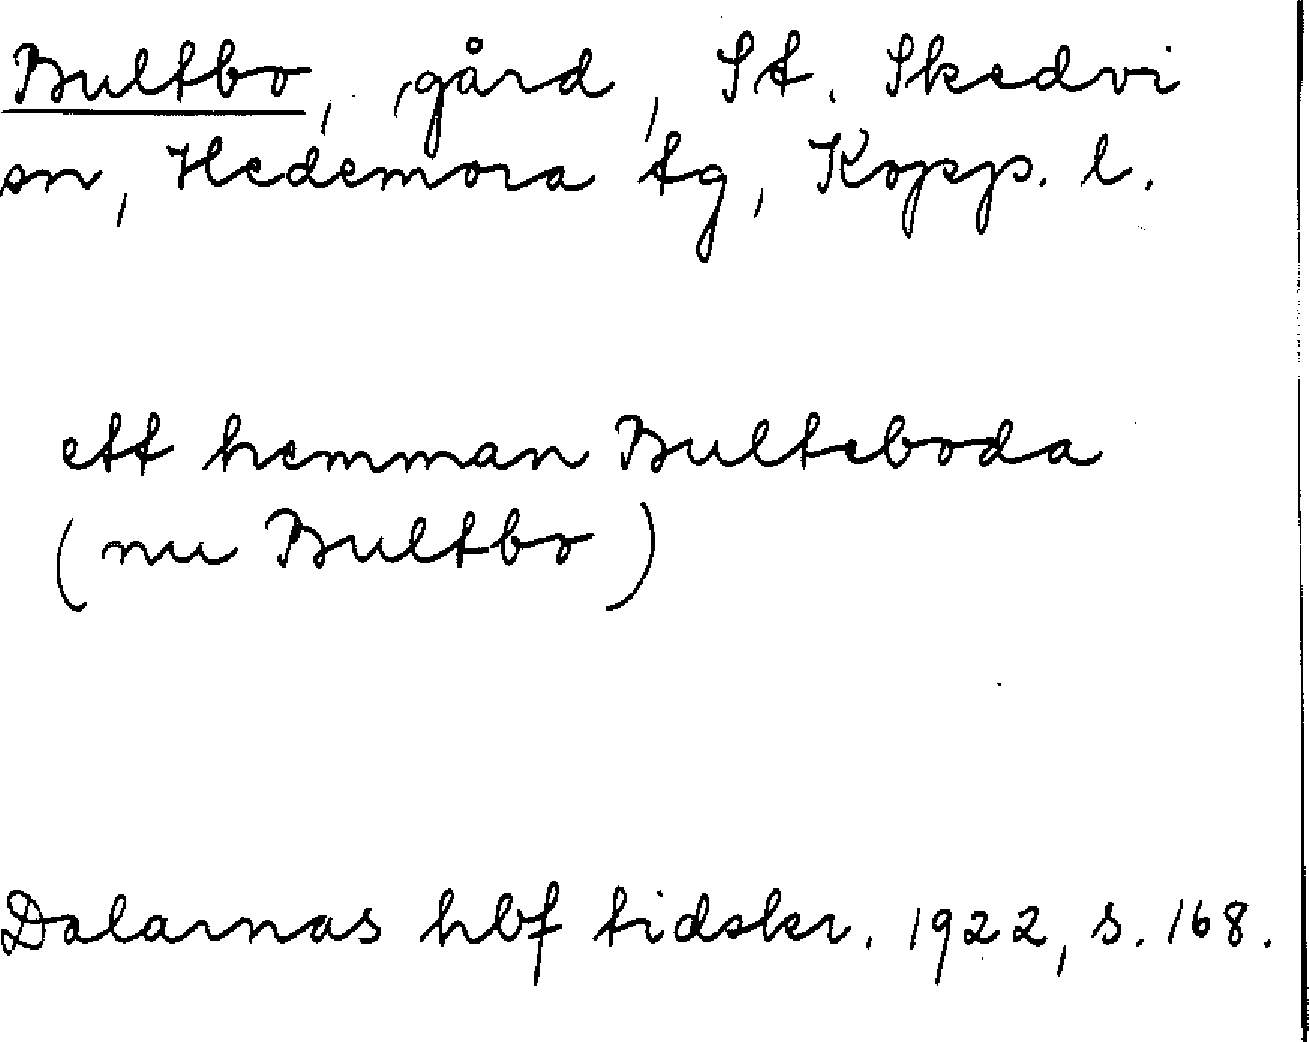 Bultbo, gård, St. Skedvi
sn, Hedemora tg, Kopp. l.
ett hemman Bulteboda
(nu Bultbo)
Dalarnas hbf tidskr. 1922, s. 168.